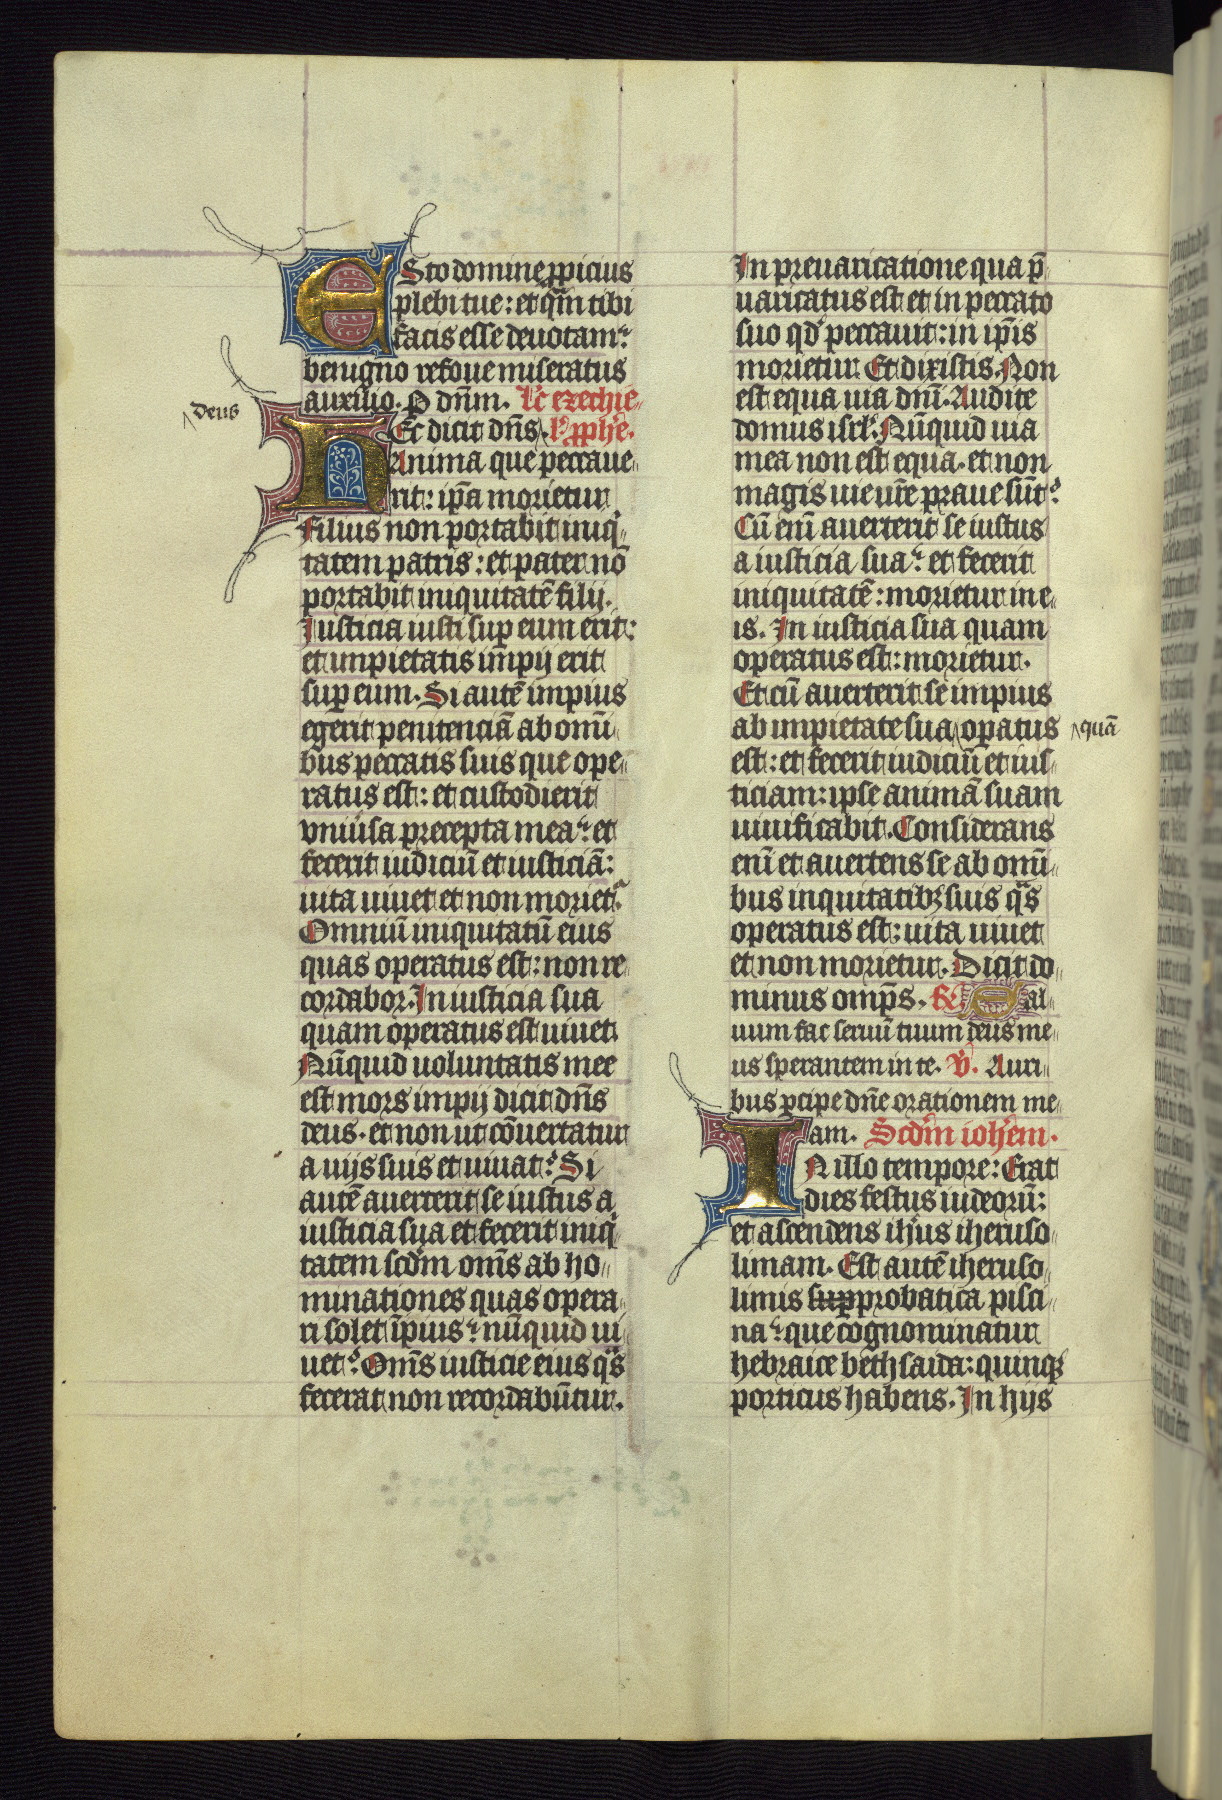 Esto domine ꝓpicius
plebi tue: et qͣm tibi
facis esse deuotam:
benigno refoue miseratus
auxilio. ꝑ dn̄m. lc̄ ezechie
deus
Hec dicit dn̄s l ꝓphē.
Anima que peccaue
rit: ip̄a morietur
filius non portabit iniqͥ
tatem patris: et pater nō
portabit iniquitatē filij.
Iusticia iusti suꝑ eum erit:
et impietatis impij erit
suꝑ eum. Si autē impius
egerit penitenciā ab omī
bus peccatis suis que ope
ratus est: et custodierit
vniūsa precepta mea: et
fecerit iudiciū et iusticiā:
uita uiuet et non morietᷣ.
Omniū iniquitatū eius
quas operatus est: non re
cordabor. In iusticia sua
quam operatus est uiuet
Nūquid uoluntatis mee
est mors impij dicit dn̄s
deus. et non ut cōuertatur
a uijs suis et uiuat? Si
autē auerterit se iustus a
iusticia sua et fecerit iniqͥ
tatem scd̄m om̄s ab ho
minationes quas opera
ri solet īpius: nūquid ui
uet? Om̄s iusticie eius qͣs
fecerat non recordabūtur.
In preuaricatione qua p̄
uaricatus est et in peccato
suo qd̓ peccauit: in ip̄is
morietur. Et dixistis. Non
est equa uia dn̄i. Audite
domus isrl̓. Nūquid uia
mea non est equa. et non
magis uie ur̄e praue sūt?
Cū enī auerterit se iustus
a iusticia sua: et fecerit
iniquitatē: morietur in e
is. In iusticia sua quam
operatus est: morietur.
Et cū auerterit se impius
ab impietate sua oꝑatus quā
est: et fecerit iudiciū et ius
ticiam: ipse animā suam
uiuificabit. Considerans
enī et auertens se ab omī
bus inquitatibꝫ suis qͣs
operatus est: uita uiuet
et non morietur. Dicit do
minus omp̄s. R̄ Sal
uum fac seruū tuum deus me
us sperantem in te. V̄. Auri
bus ꝑcipe dn̄e orationem me
am. Scd̄m ioh̄em.
In illo tempore: Erat
dies festus iudeorū:
et ascendens ih̓us iheruso
limam. Est autē iheruso
limis sup probatica pisci
na: que cognominatur
hebraice bethsaida: quinqꝫ
porticus habens. In hijs